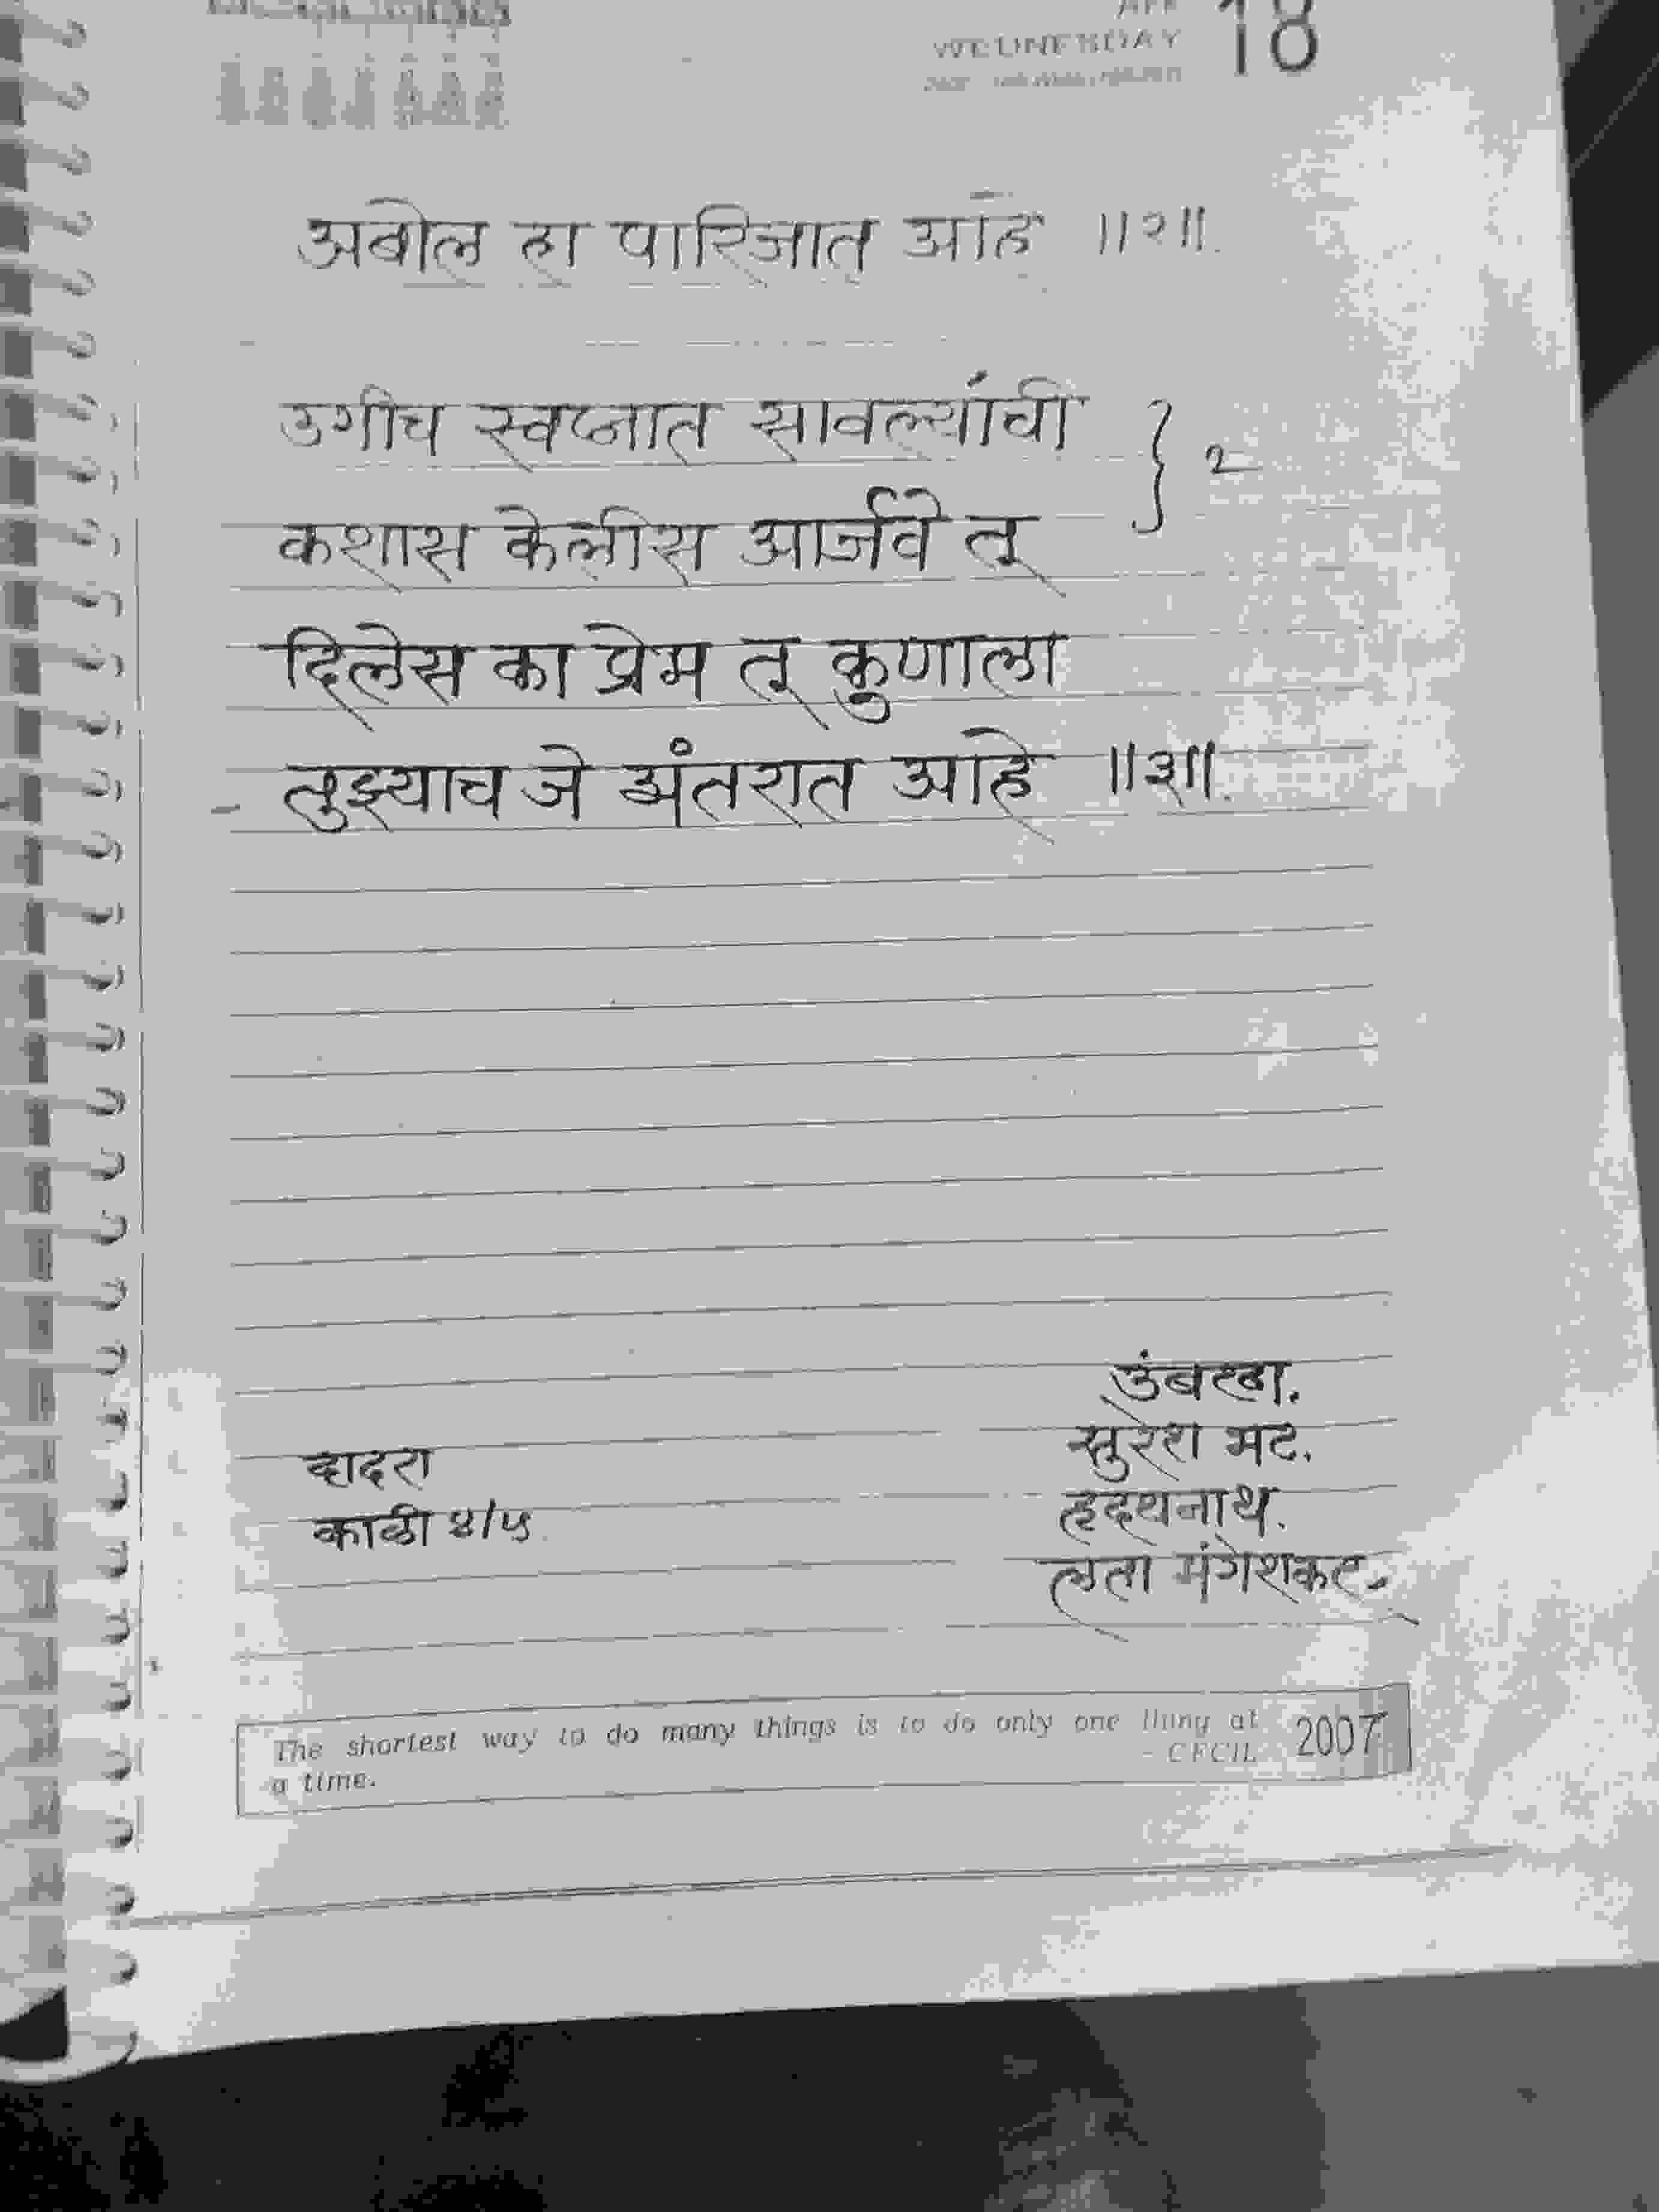 WEDNESDAY 18
अबोल हा पारिजात आहे ॥२॥.
उगीच स्वप्नात सावल्यांची } २
कशास केलीस आर्जवे तू
दिलेस का प्रेम तू कुणाला
तुझ्याच जे अंतरात आहे ॥३॥.
उंबरठा.
दादरा
सुरेश भट.
काळी ४/५
हृदयनाथ.
लता मंगेशकर.
The shortest way to do many things is to do only one thing at
a time. - CECIL 2007